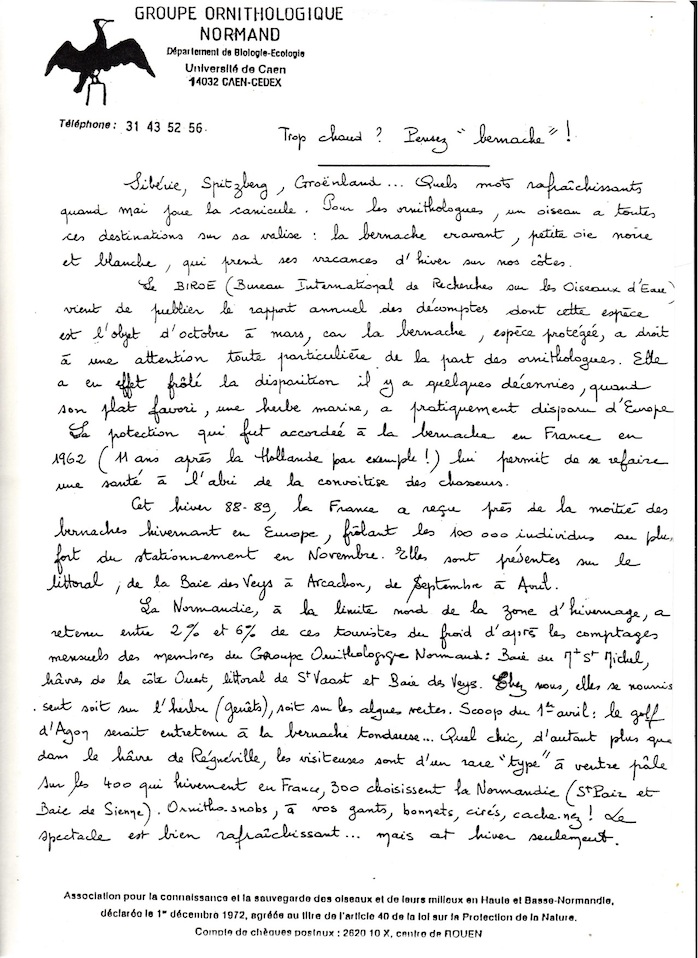 GROUPE ORNITHOLOGIQUE
NORMAND
Département de Biologie-Ecologie
Université de Caen
14032 CAEN-CEDEX
Téléphone : 31 43 52 56.
Trop chaud ? Pensez "bernache" !
Sibérie, Spitzberg, Groënland... Quels mots rafraîchissants
quand mai joue la canicule. Pour les ornithologues, un oiseau a toutes
ces destinations sur sa valise : la bernache cravant, petite oie noire
et blanche, qui prend ses vacances d'hiver sur nos côtes.
Le BIROE (Bureau International de Recherches sur les Oiseaux d'Eau)
vient de publier le rapport annuel des décomptes dont cette espèce
est l'objet d'octobre à mars, car la bernache, espèce protégée, a droit
à une attention toute particulière de la part des ornithologues. Elle
a en effet frôlé la disparition il y a quelques décennies, quand
son plat favori, une herbe marine, a pratiquement disparu d'Europe
La protection qui fut accordeé à la bernache en France en
1962 (11 ans après la Hollande par exemple !) lui permit de se refaire
une santé à l'abri de la convoitise des chasseurs.
Cet hiver 88-89, la France a reçu près de la moitié des
bernaches hivernant en Europe, frôlant les 100 000 individus au plus
fort du stationnement en Novembre. Elles sont présentes sur le
littoral, de la Baie des Veys à Arcachon, de Septembre à Avril.
La Normandie, à la limite nord de la zone d'hivernage, a
retenu entre 2% et 6% de ces touristes du froid d'après les comptages
mensuels des membres du Groupe Ornithologique Normand : Baie du Mt St Michel,
hâvres de la côte Ouest, littoral de St Vaast et Baie des Veys. Chez nous, elles se nourris
sent soit sur l'herbu (Genêts), soit sur les algues vertes. Scoop du 1er avril : le golf
d'Agon serait entretenu à la bernache tondeuse... Quel chic, d'autant plus que
dans le hâvre de Régnéville, les visiteuses sont d'un rare "type" à ventre pâle
Sur les 400 qui hivernent en France, 300 choisissent la Normandie (St Pair et
Baie de Sienne). Ornitho.snobs, à vos gants, bonnets, cirés, cache.nez ! Le
spectacle est bien rafraîchissant... mais cet hiver seulement.
Association pour la connaissance et la sauvegarde des oiseaux et de leurs milieux en Haute et Basse-Normandie,
déclarée le 1er décembre 1972, agréée au titre de l'article 40 de la loi sur la Protection de la Nature.
Compte de chèques postaux : 2620 10 X, centre de ROUEN